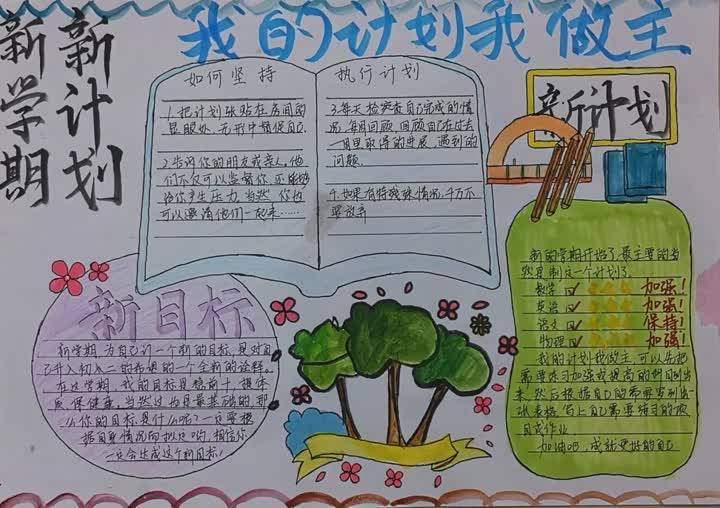 新学期
新计划
我的计划我做主
如何坚持
1.把计划张贴在房间的
显眼处,无形中督促自己
2.告诉你的朋友或亲人,他
们不仅可以监督你,还能够
给你产生压力,当然,你也
可以邀请他们一起来……
执行计划
3.每天检查自己完成的情
况,每月回顾,回顾自己在过去
一月里取得的进展,遇到的
问题
4.如果有特殊情况,千万不
要放弃
新计划
新的学期开始了,最主要的当
然是制定一个计划了。
数学 加强!
英语 加强!
语文 保持!
物理 加强!
我的计划我做主,可以先把
需要练习加强或提高的科目列出
来,然后根据自己的需要罗列出一
张表格,写上自己需要练习的项
目或作业
加油吧,成就更好的自己
新目标
新学期,为自己订一个新的目标,是对自
己升入初二的希冀的一个全新的诠释。
在这学期,我的目标是稳前十,提体
质,保健康,当然这也是最基础的,那
么你的目标是什么呢?一定要根
据自身情况而拟定哟,相信你
一定会达成这个新目标!